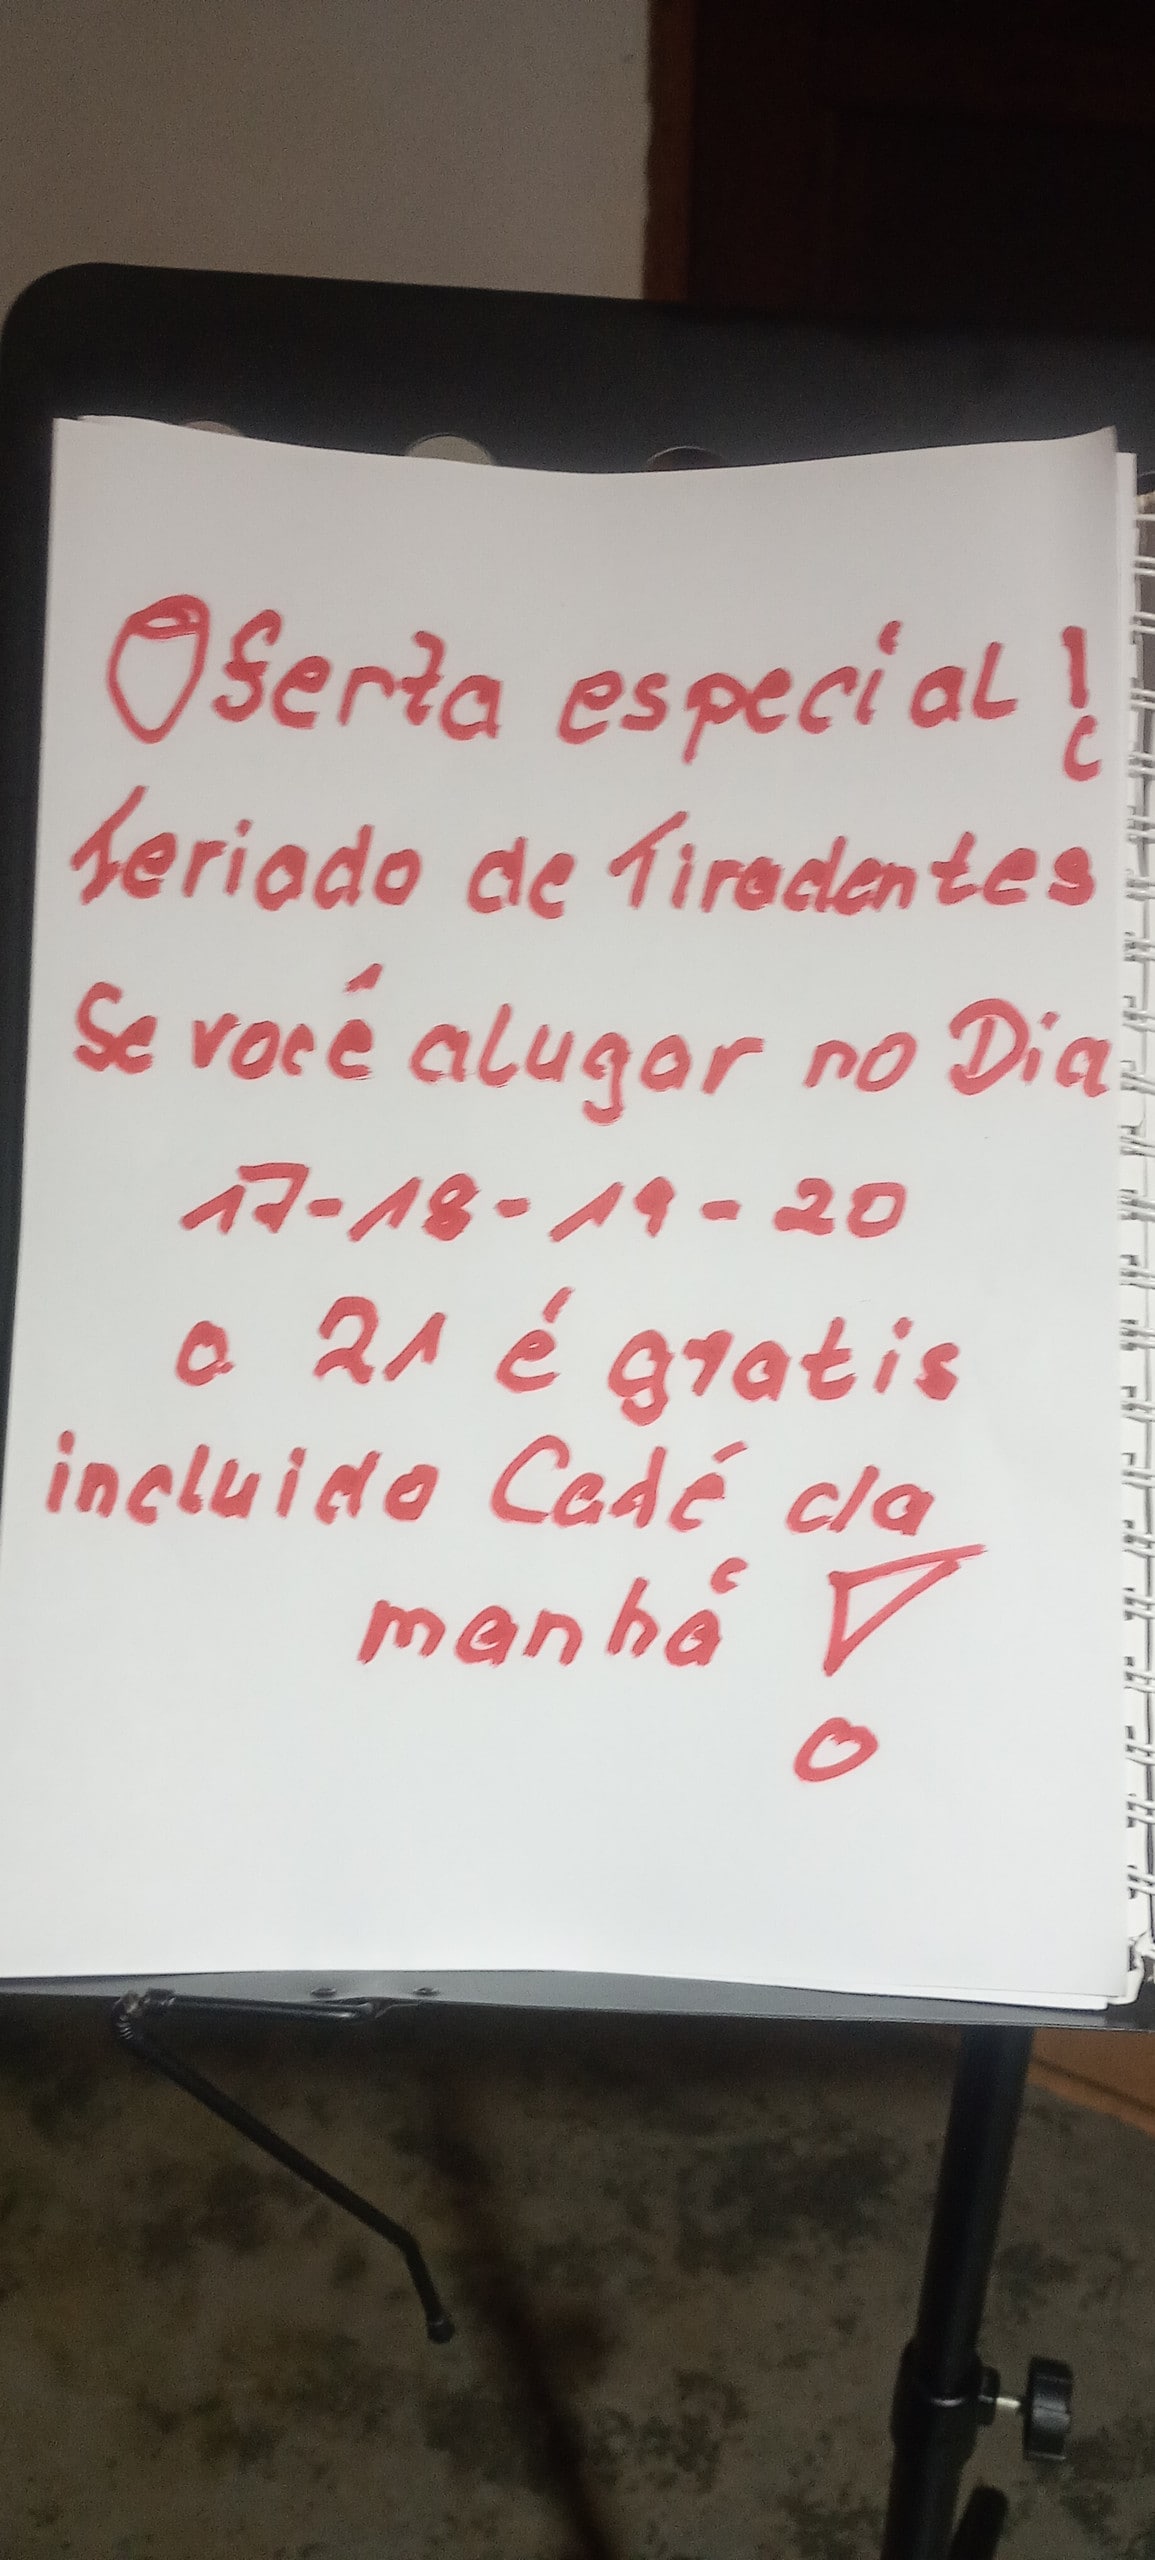 Oferta especial!
feriado de Tiradentes
Se você alugar no Dia
17-18-19-20
o 21 é gratis
incluido Café da
manhá!